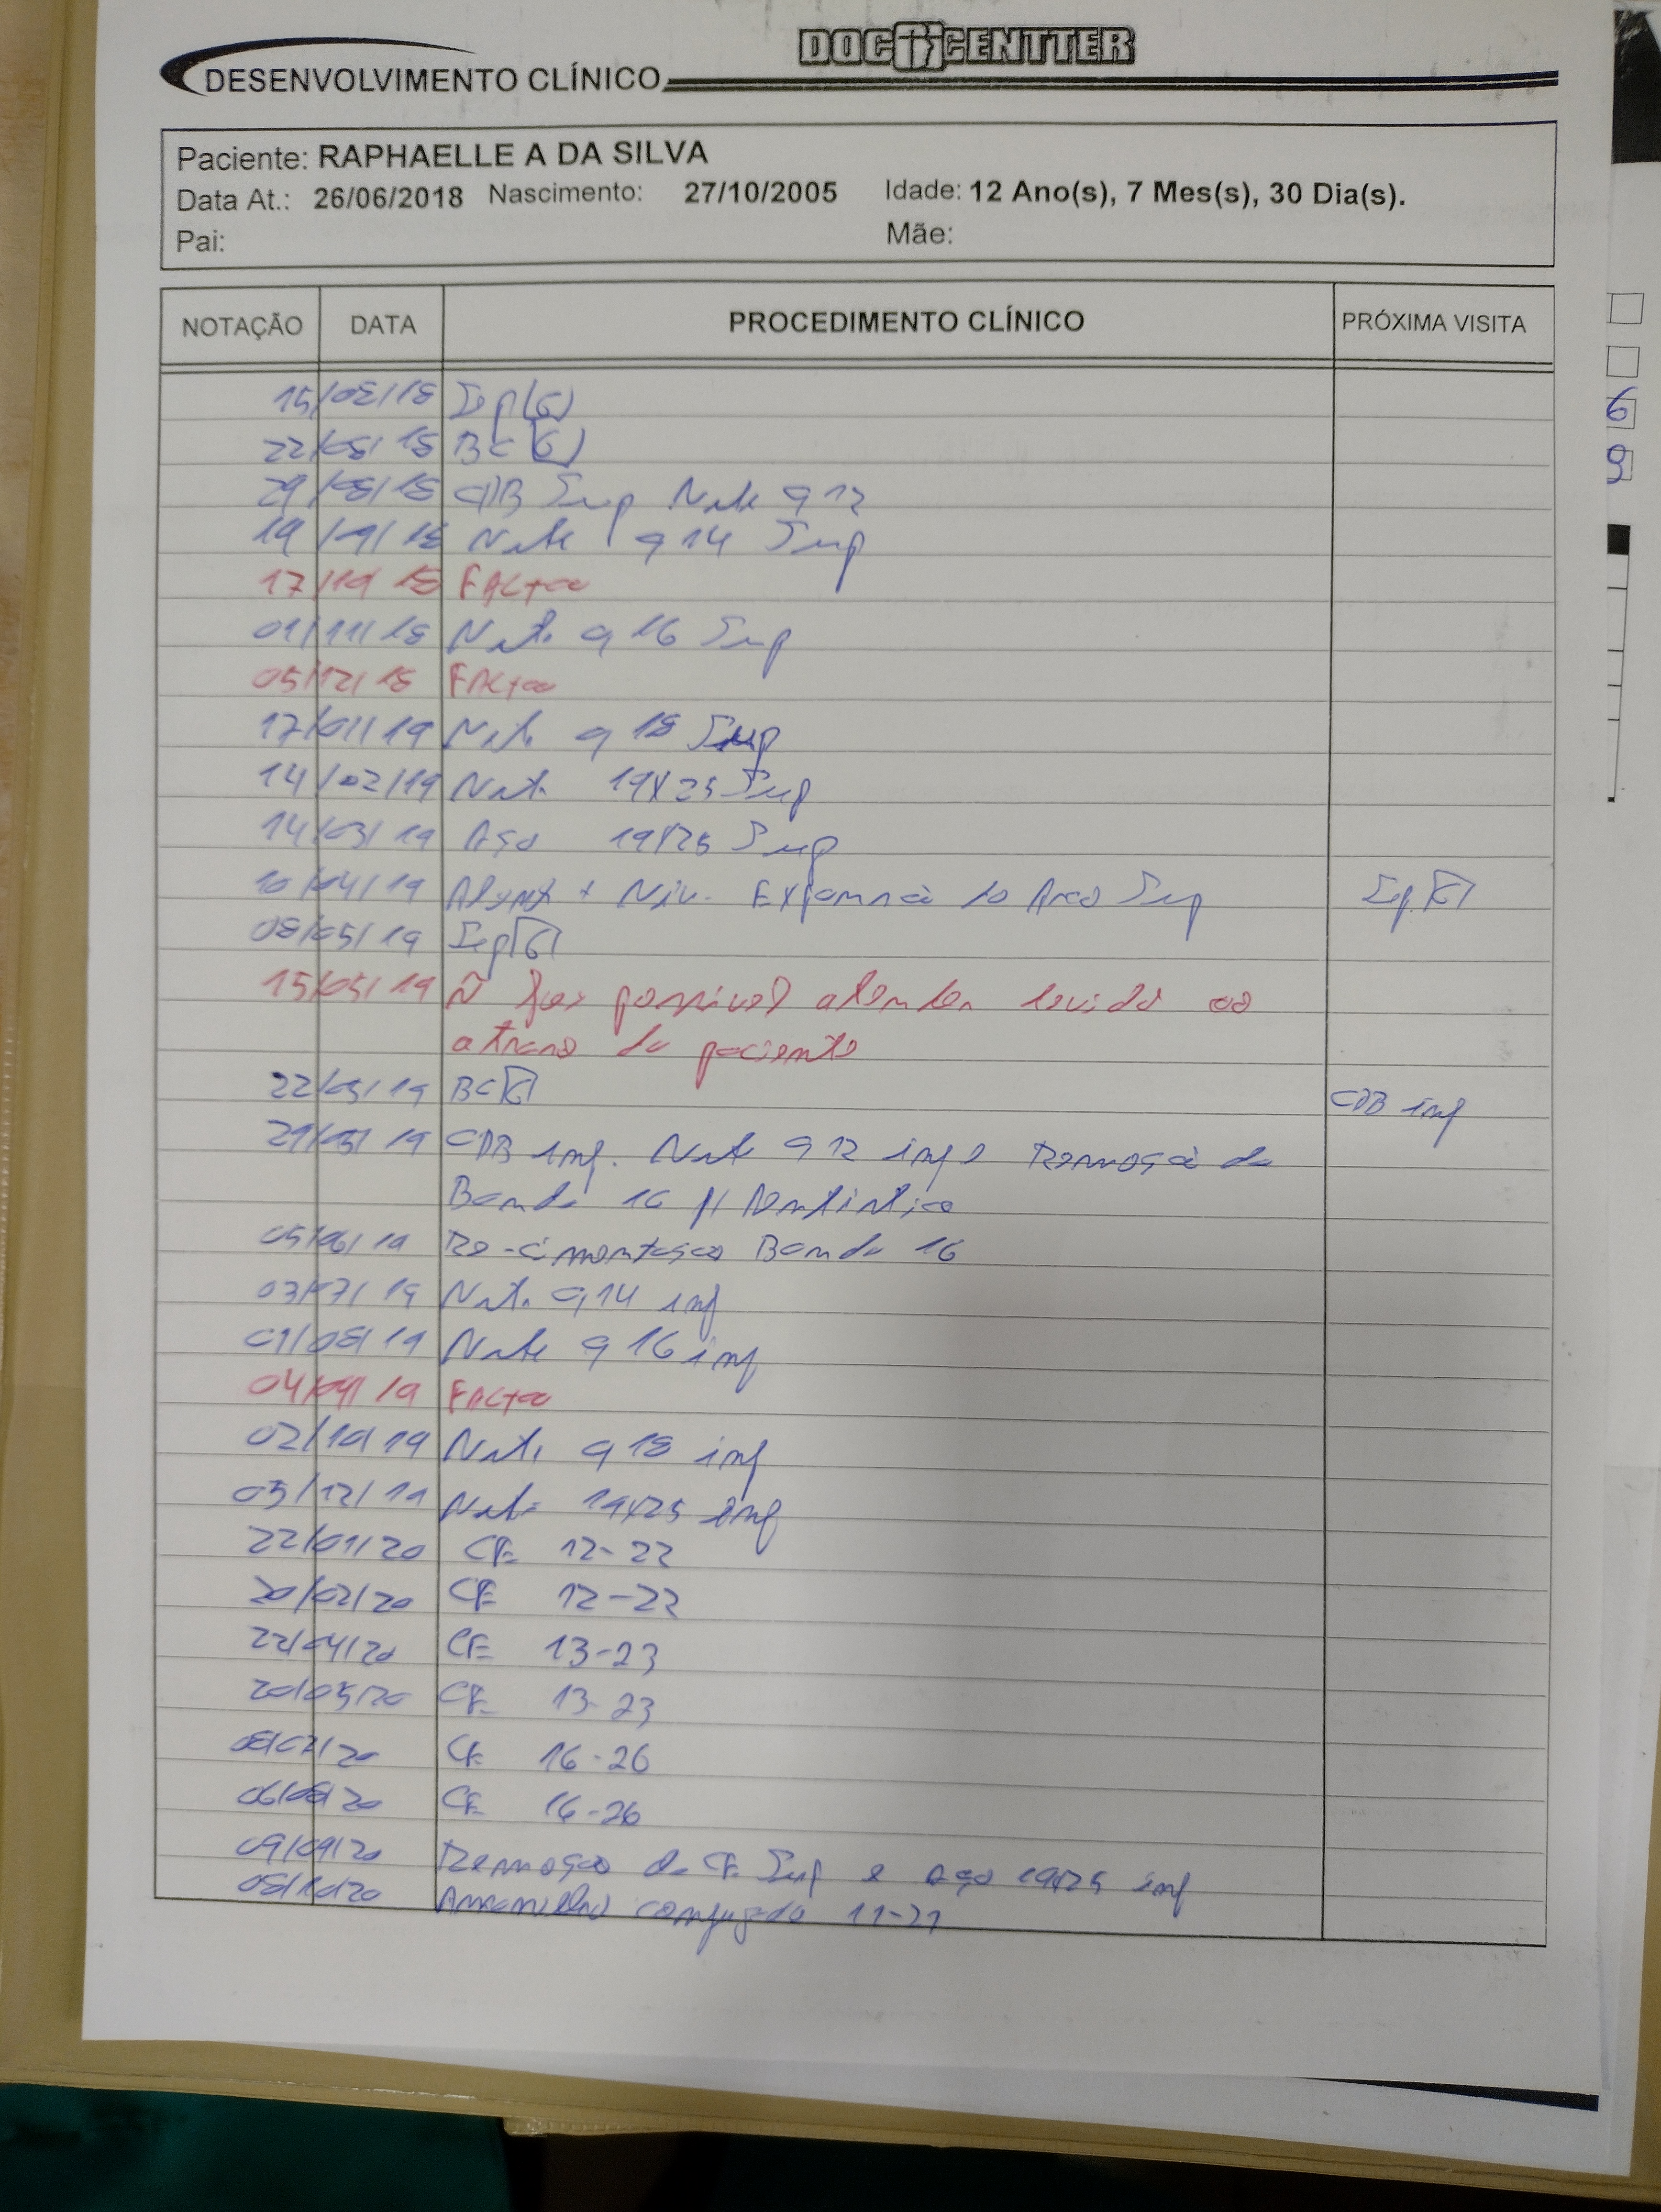 DOCCENTTER
DESENVOLVIMENTO CLÍNICO
Paciente: RAPHAELLE A DA SILVA
Data At.: 26/06/2018 Nascimento: 27/10/2005 Idade: 12 Ano(s), 7 Mes(s), 30 Dia(s).
Pai: Mãe:
NOTAÇÃO DATA PROCEDIMENTO CLÍNICO PRÓXIMA VISITA
15/08/18 Sep (6)
22/08/18 BC (6)
29/08/18 CDB Sup Niti 0,12
19/09/18 Niti 0,14 Sup
17/10/18 FALTOU
01/11/18 Niti 0,16 Sup
05/12/18 FALTOU
17/01/19 Niti 0,18 Sup
14/02/19 Niti 19X25 Sup
14/03/19 Aço 19X25 Sup
10/04/19 + Niv. Expansão do Arco Sup Sep. 6
08/05/19 Sep 6
15/05/19 Ñ foi possível atender devido ao
atraso da paciente
22/05/19 BC 6 CDB inf
29/05/19 CDB inf. Niti 0,12 inf e Remoção da
Banda 16 p/ Dentística
05/06/19 Re-cimentação Banda 16
03/07/19 Niti 0,14 inf
01/08/19 Niti 0,16 inf
04/09/19 FALTOU
02/10/19 Niti 0,18 inf
05/12/19 Niti 19X25 inf
22/01/20 CE 12-22
20/02/20 CE 12-22
22/04/20 CE 13-23
20/05/20 CE 13-23
08/07/20 CE 16-26
06/08/20 CE 16-26
09/09/20 Remoção da CE Sup e Aço 19X25 inf
08/10/20 Amarrilho conjugado 11-21
6
9